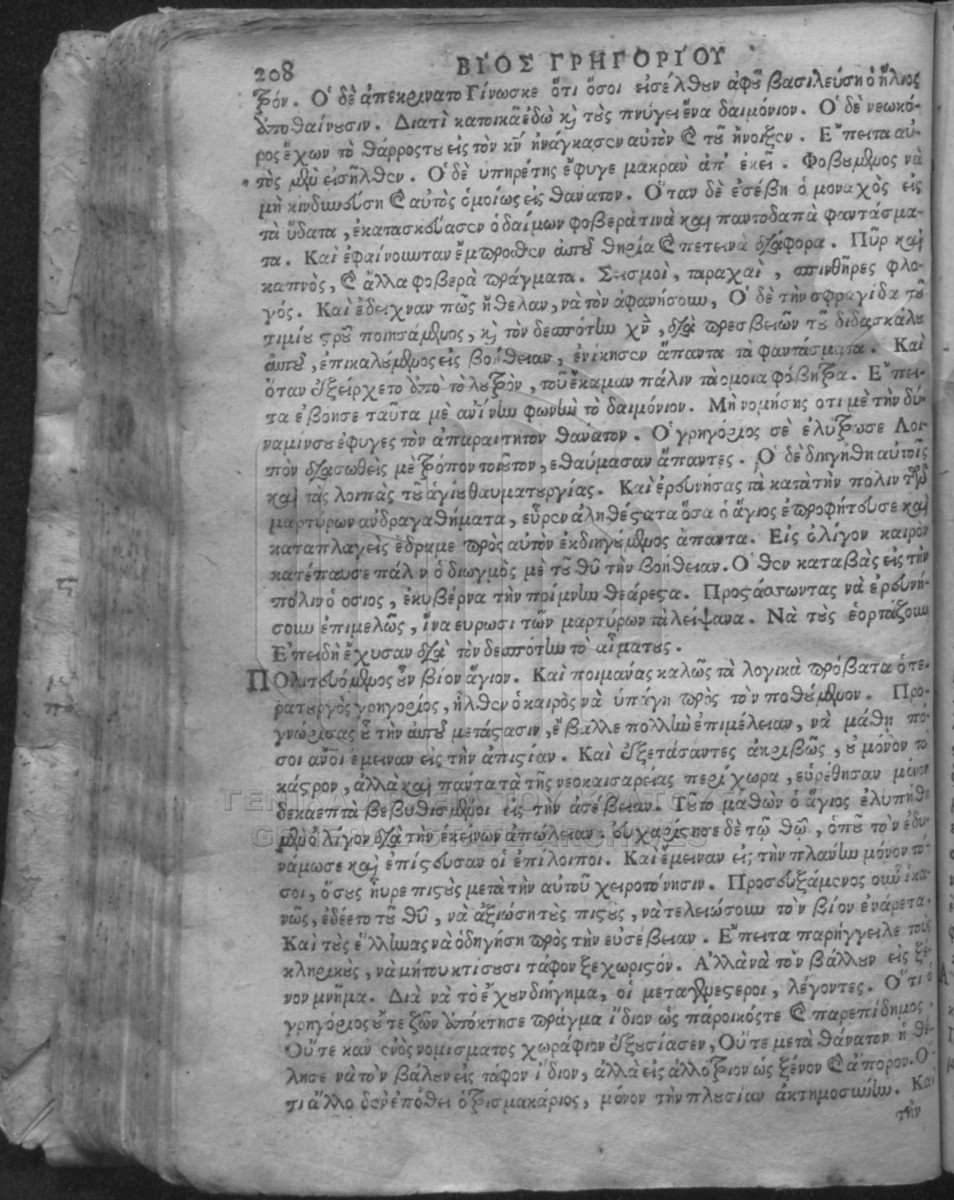 208 ΒΙΟΣ ΓΡΗΓΟΡΙΟΥ
τρόν. Ὁ δὲ ἀπεκρίνατο Γίνωσκε ὅτι ὅσοι εἰσέλθουν ἀφοῦ βασιλεύσῃ ὁ ἥλιος
ἀποθαίνουσιν. Διατὶ κατοικᾶ ἐδῶ καὶ τοὺς πνύγει ἕνα δαιμόνιον. Ὁ δὲ νεωκό-
ρος ἔχων τὸ θάρρος του εἰς τὸν κν͂ ἠνάγκασεν αὐτὸν καὶ τοῦ ἤνοιξεν. Ἔπειτα αὐ-
τὸς μὲν εἰσῆλθεν. Ὁ δὲ υπηρέτης ἔφυγε μακραν ἀπ' ἐκεῖ. Φοβουμενος νὰ
μὴ κινδυνεύσῃ καὶ αὐτὸς ὁμοίως εἰς θανατον. Ὅταν δὲ ἐσέβη ὁ μοναχὸς εἰς
τὰ ὕδατα, ἐκατασκεύασεν ὁ δαίμων φοβερὰ τινὰ καὶ παντοδαπὰ φαντάσμα-
τα. Καὶ ἐφαίνονταν ἔμπροσθεν αὐτοῦ θηρία καὶ πετεινὰ διάφορα. Πῦρ καὶ
καπνὸς, καὶ ἄλλα φοβερὰ πράγματα. Σεισμοὶ, ταραχαὶ, σπινθῆρες φλο-
γός. Καὶ ἐδειχναν πῶς ἤθελαν, νὰ τὸν ἀφανήσουν, Ὁ δὲ τὴν σφραγίδα τοῦ
τιμίου σρῦ ποιησάμενος, καὶ τὸν δεσπότην χν͂, διὰ πρεσβειῶν τοῦ διδασκάλου
αὐτοῦ, ἐπικαλούμενος εἰς βοήθειαν, ἐνίκησεν ἅπαντα τὰ φαντάσματα. Καὶ
ὅταν ἐξείρχετο ἀπὸ τὸ λουτρὸν, τοῦ ἔκαμαν πάλιν τὰ ομοια φόβητρα. Ἔπει-
τα ἐβοησε ταῦτα μὲ ἀνίνην φωνὴν τὸ δαιμόνιον. Μὴ νομήσης οτι μὲ τὴν δύ-
ναμίν σου ἐφυγες τὸν ἀπαραιτητον θανάτον. Ὁ γρηγόριος σὲ ἐλύτρωσε Λοι-
πὸν διασωθεὶς μὲ τρόπον τοιοῦτον, εθαύμασαν ἅπαντες. Ὁ δὲ διηγήθη αὐτοῖς
καὶ τὰς λοιπὰς τοῦ ἁγίου θαυματουργίας. Καὶ ἐρευνήσας τὰ κατὰ τὴν πολιν τῶν
μαρτύρων ανδραγαθήματα, εὗρεν ἀληθέστατα ὅσα ὁ ἅγιος ἐπροφήτευσε καὶ
καταπλαγεὶς ἔδραμε πρὸς αὐτὸν ἐκδιηγούμενος ἅπαντα. Εἰς ὀλίγον καιρὸν
κατέπαυσε πάλιν ὁ διωγμὸς μὲ τοῦ θῦ τὴν βοήθειαν. Ὅθεν καταβὰς εἰς τὴν
πόλιν ὁ οσιος, ἐκυβέρνα τὴν ποίμνην θεάρεστα. Προστάσσωντας νὰ ἐρευνή-
σουν ἐπιμελῶς, ἵνα ευρωσι τῶν μαρτύρων τὰ λείψανα. Νὰ τοὺς ἑορτάζουν
Ἐπειδὴ ἔχυσαν διὰ τὸν δεσπότην τὸ αἷμα τους.
ΠΟλιτευόμενος οὖν βίον ἅγιον. Καὶ ποιμανάς καλῶς τὰ λογικὰ πρόβατα ὁ τε-
ρατουργὸς γρηγορίος, ἦλθεν ὁ καιρὸς νὰ ὑπάγη πρὸς τον ποθούμενον. Προ-
γνώρισας οὖ τὴν αὐτοῦ μετάστασιν, ἔβαλλε πολλὴν ἐπιμέλειαν, νὰ μάθη πό-
σοι ανοι έμειναν εἰς τὴν ἀπιστίαν. Καὶ ἐξετάσαντες ἀκριβῶς, οὐ μόνον τὸ
κάστρον, ἀλλὰ καὶ πάντα τὰ τῆς νεοκαισαρείας περίχωρα, εὑρέθησαν μόνον
δεκαεπτὰ βεβυθισμένοι εἰς τὴν ἀσέβειαν. Τοῦτο μαθὼν ὁ ἅγιος ἐλυπήθη
μὲν ὀλίγον διὰ τὴν ἐκεινων ἀπώλειαν. εὐχαρίστησε δὲ τῷ θῷ, ὁποῦ τον ἐδυ-
νάμωσε καὶ ἐπίστευσαν οἱ ἐπίλοιποι. Καὶ ἔμειναν εἰς τὴν πλανην μόνον τό-
σοι, ὅσους ηὗρε πιστοὺς μετὰ τὴν αὐτοῦ χειροτόνησιν. Προσευξάμενος οὖν ἱκα-
νῶς, ἐδέετο τοῦ θῦ, νὰ ἀξιώσῃ τοὺς πιστοὺς, νὰ τελειώσουν τὸν βίον ἐνάρετα.
Καὶ τοὺς ἕλληνας νὰ ὁδηγήση πρὸς τὴν εὐσέβειαν. Ἔπειτα παρήγγειλε τοὺς
κληρικοὺς, νὰ μή του κτισουσι τάφον ξεχωριστόν. Ἀλλὰ νὰ τὸν βάλλουν εἰς ξέ-
νον μνῆμα. Διὰ νὰ τὸ ἔχουν διήγημα, οἱ μεταγενέστεροι, λέγοντες. Ὅτι ὁ
γρηγόριος οὔτε ζῶν ἀπόκτησε πράγμα ἴδιον ὡς πάροικός τε καὶ παρεπίδημος.
Οὔτε καν ενὸς νομισματος χωράφιον ἐξουσίασεν, Οὔτε μετὰ θάνατον ἠθέ-
λησε νὰ τὸν βάλουν εἰς τάφον ἴδιον, ἀλλὰ εἰς ἀλλότριον ὡς ξένον καὶ ἄπορον. Ὅ-
τι ἄλλο δεν ἐπόθει ὁ τρισμακαριος, μόνον τὴν πλουσίαν ἀκτημοσύνην. Καὶ
τὴν
ΓΕΝΙΚΑ ΑΡΧΕΙΑ ΤΟΥ ΚΡΑΤΟΥΣ
GENERAL STATE ARCHIVES